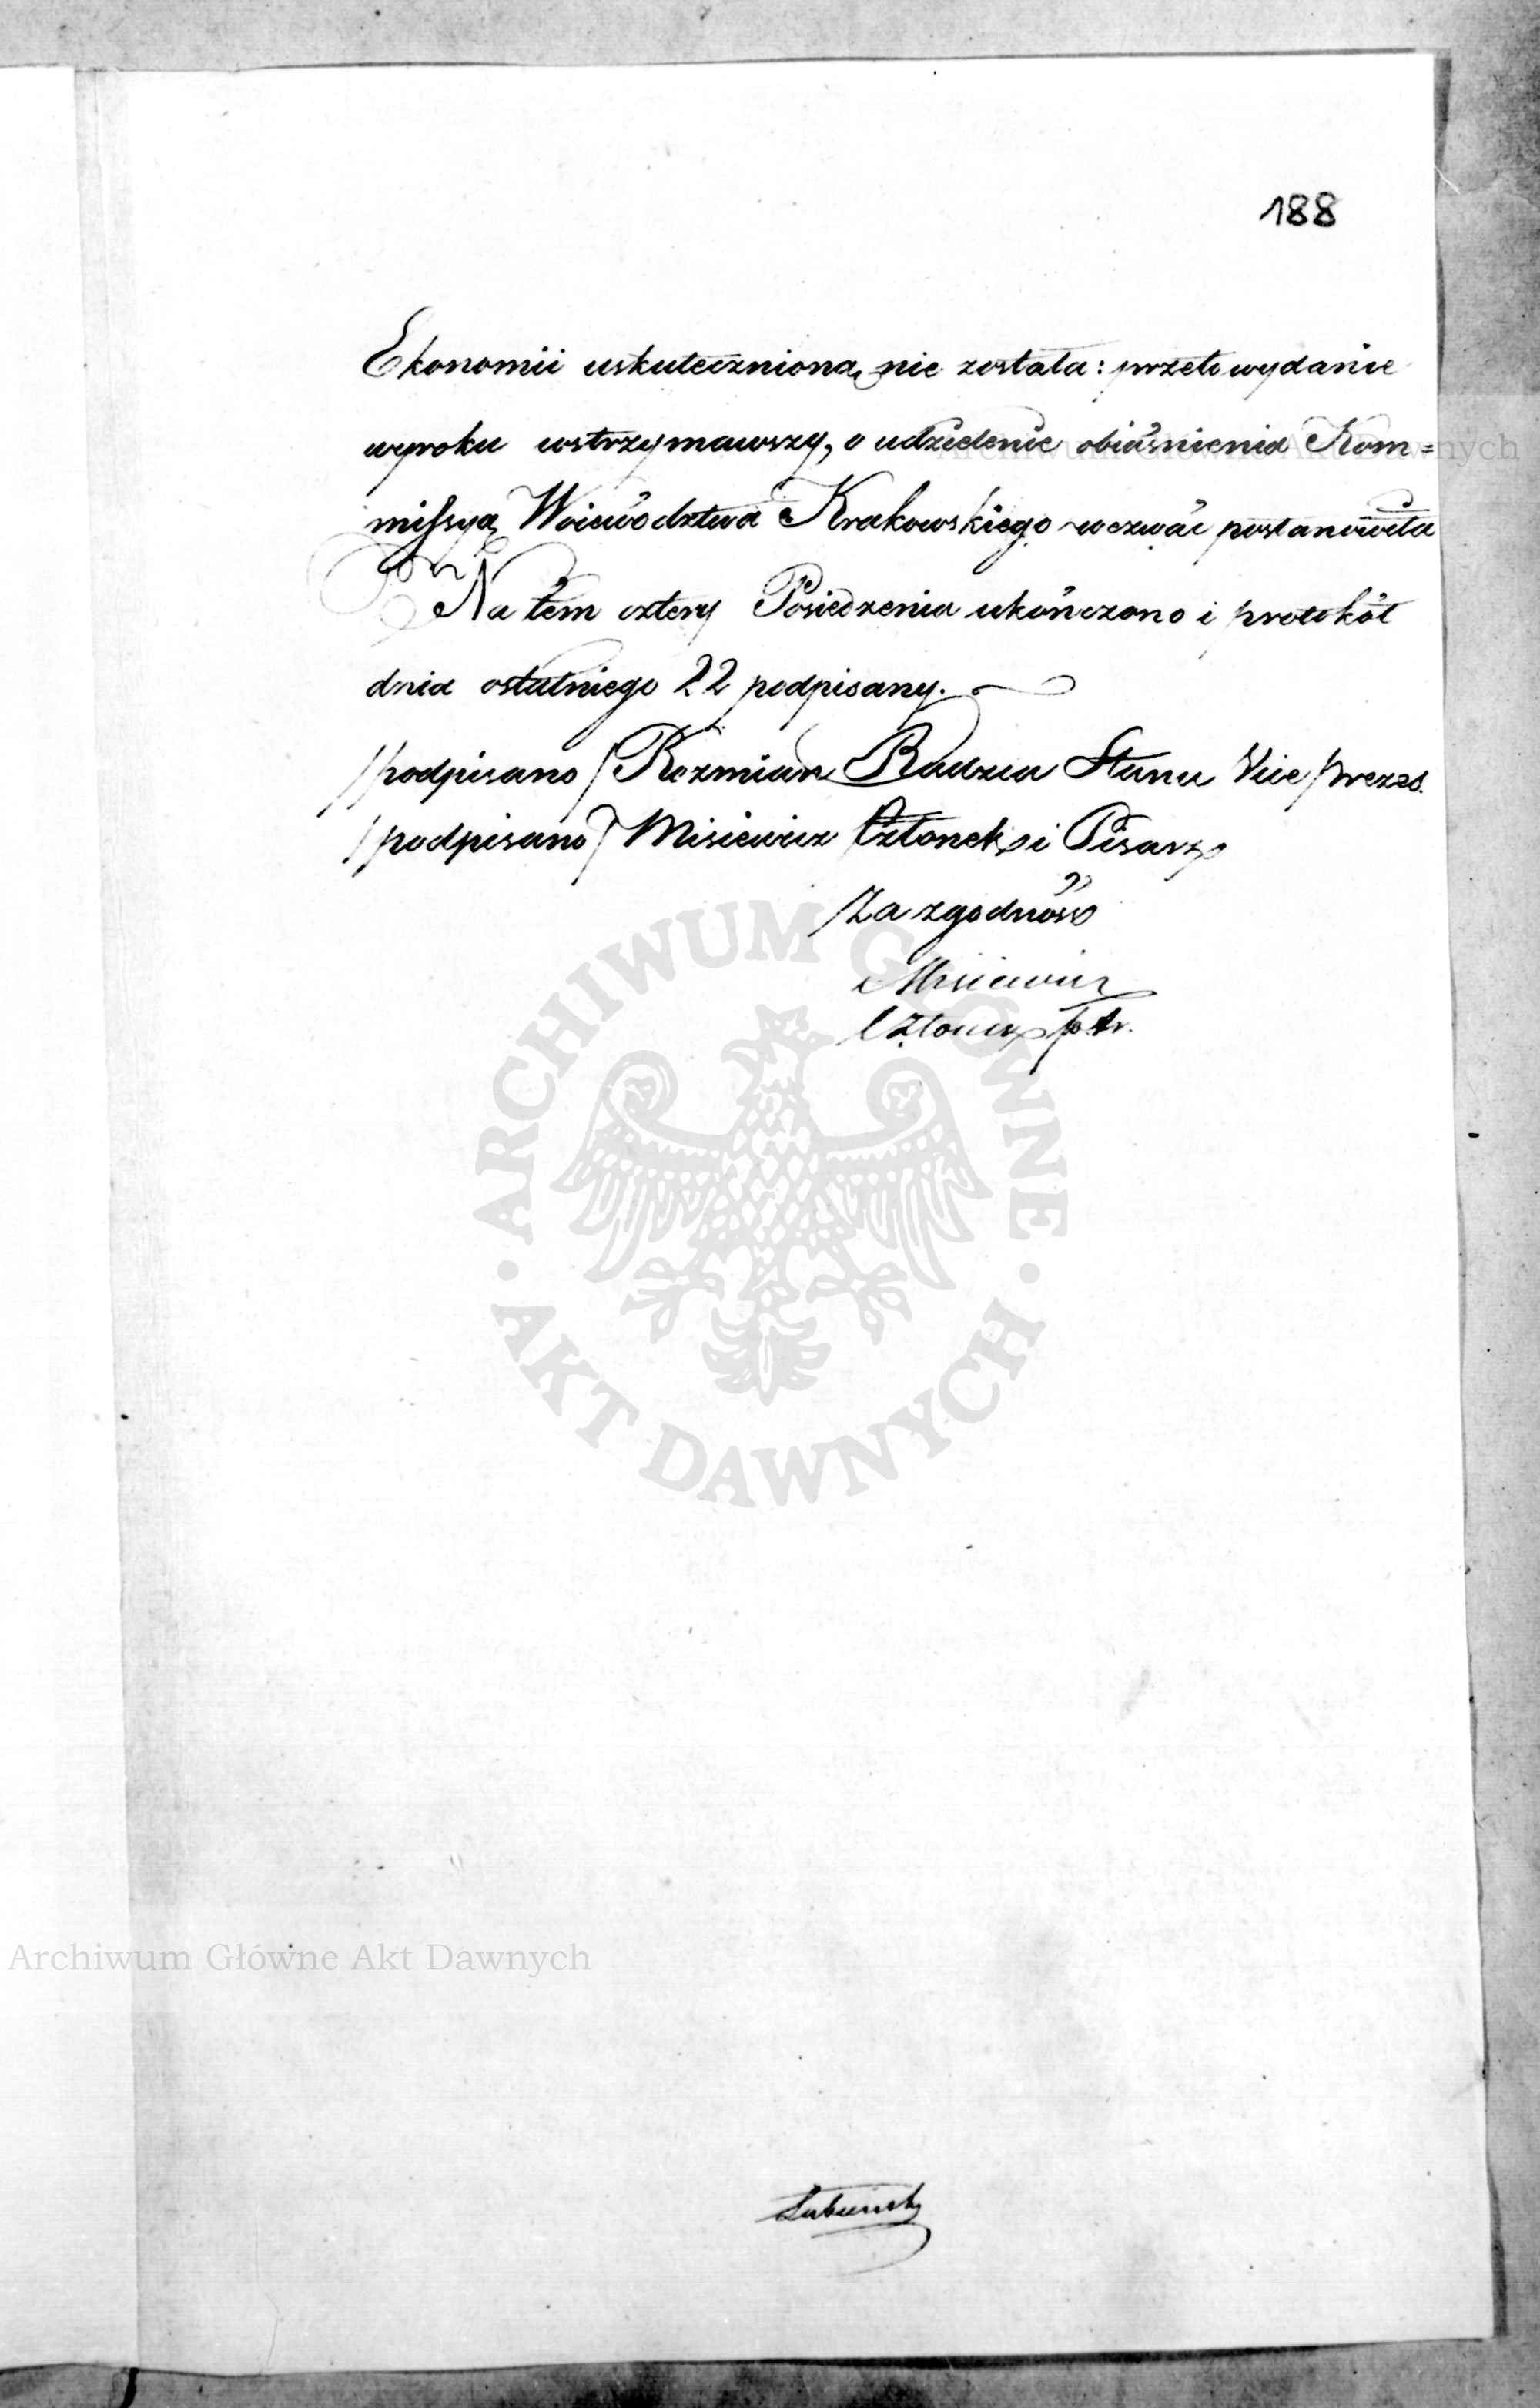 188
Ekonomii uskutecznioną nie została: przeto wydanie
wyroku wstrzymawszy, o udzielenie obiaśnienia Kom=
missyą Woiewództwa Krakowskiego wezwać postanowiła
Na tem cztery Posiedzenia ukończono i protokół
dnia ostatniego 22 podpisany.
/podpisano/ Kozmian Radzca Stanu Vice Prezes.
/podpisano/ Misiewicz Członek i Pisarz
Za zgodność
Misiewicz
Członek
Archiwum Główne Akt Dawnych
ARCHIWUM GŁÓWNE AKT DAWNYCH
Archiwum Główne Akt Dawnych